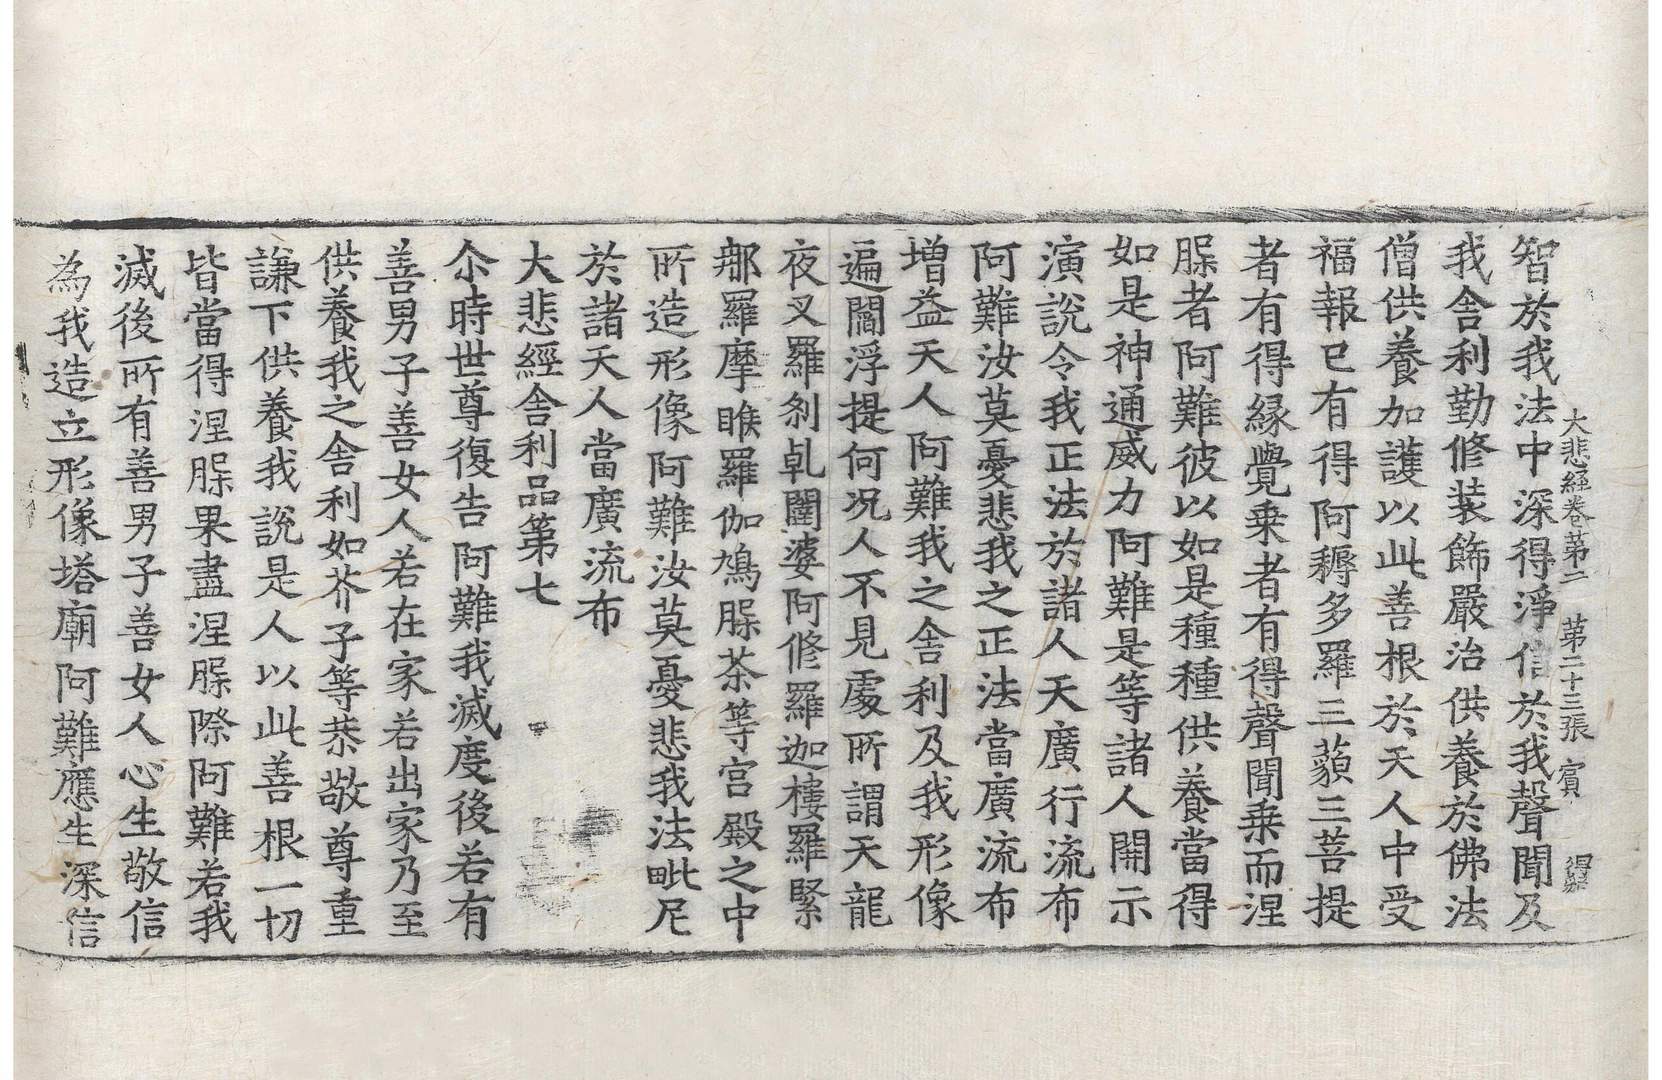 大悲經卷第二 第二十三張 賓
智於我法中深得淨信於我聲聞及
我舍利勤修装飾嚴治供養於佛法
僧供養加護以此善根於天人中受
福報已有得阿耨多羅三藐三菩提
者有得縁覺乗者有得聲聞乗而涅
𦙁者阿難彼以如是種種供養當得
如是神通威力阿難是等諸人開示
演說令我正法於諸人天廣行流布
阿難汝莫憂悲我之正法當廣流布
增益天人阿難我之舍利及我形像
遍閻浮提何况人不見處所謂天龍
夜叉羅刹乹闥婆阿修羅迦樓羅緊
那羅摩睺羅伽鳩𦙁茶等宫殿之中
所造形像阿難汝莫憂悲我法毗尼
於諸天人當廣流布
大悲經舍利品第七
尒時世尊復告阿難我滅度後若有
善男子善女人若在家若出家乃至
供養我之舍利如芥子等恭敬尊重
謙下供養我說是人以此善根一切
皆當得涅𦙁果盡涅𦙁際阿難若我
滅後所有善男子善女人心生敬信
為我造立形像塔廟阿難應生深信